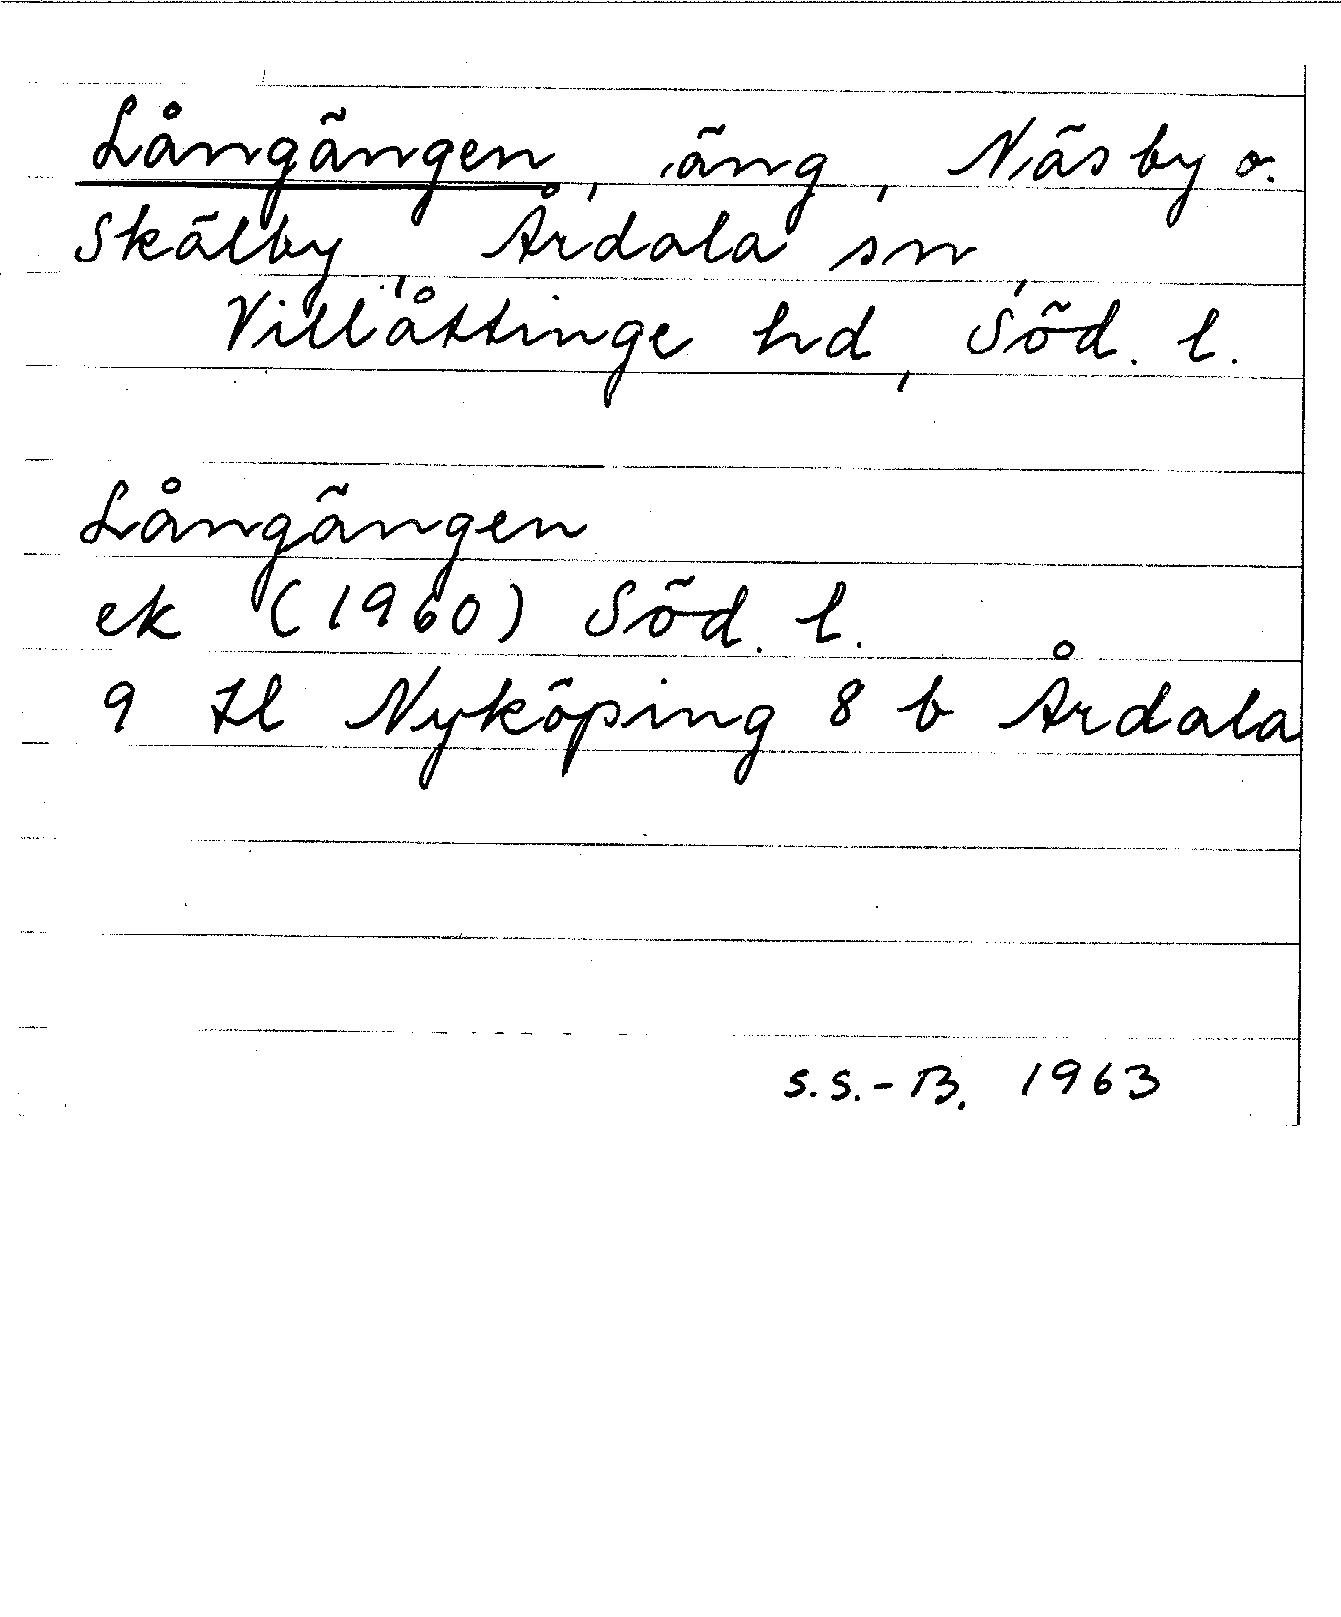 Långängen, äng, Näsby o.
Skälby, Årdala sn,
Villåttinge hd, Söd. l.
Långängen
ek (1960) Söd. l.
9 Hl Nyköping 8 b Årdala
S.S.-B. 1963